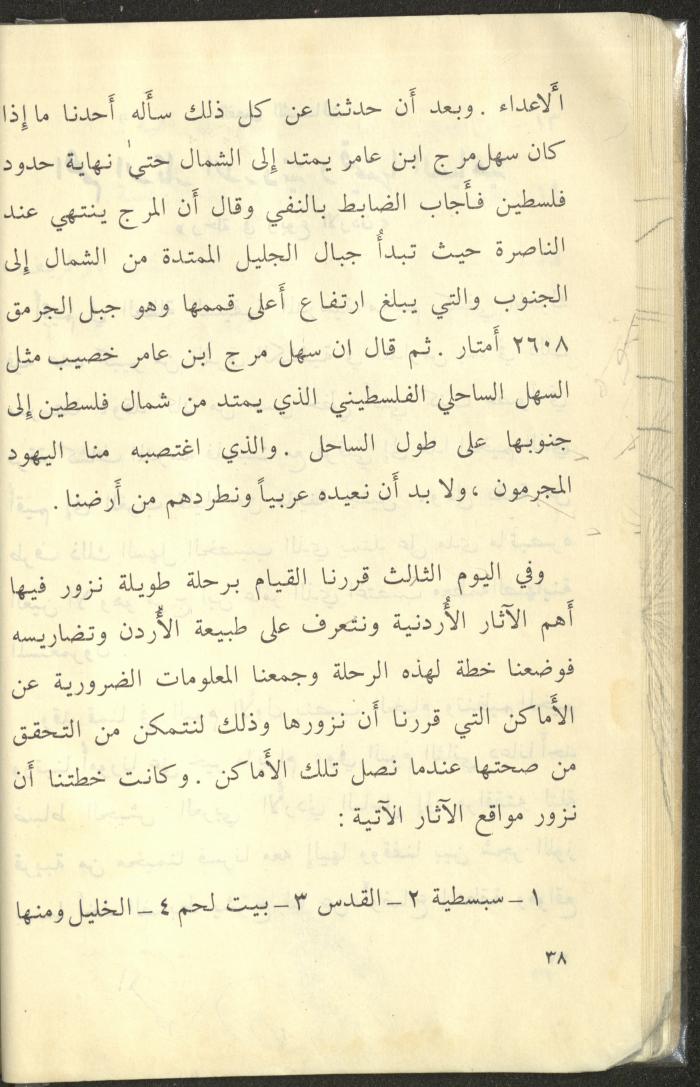 الأعداء . وبعد أَن حدثنا عن كل ذلك سأَله أَحدنا ما إِذا
كان سهل مرج ابن عامر يمتد إِلى الشمال حتىٰ نهاية حدود
فلسطين فأَجاب الضابط بالنفي وقال أَن المرج ينتهي عند
الناصرة حيث تبدأُ جبال الجليل الممتدة من الشمال إِلى
الجنوب والتي يبلغ ارتفاع أَعلى قممها وهو جبل الجرمق
٢٦٠٨ أَمتار . ثم قال ان سهل مرج ابن عامر خصيب مثل
السهل الساحلي الفلسطيني الذي يمتد من شمال فلسطين إِلى
جنوبها على طول الساحل . والذي اغتصبه منا اليهود
المجرمون ، ولا بد أَن نعيده عربياً ونطردهم من أَرضنا .
وفي اليوم الثالث قررنا القيام برحلة طويلة نزور فيها
أَهم الآثار الأُردنية ونتعرف على طبيعة الأُردن وتضاريسه
فوضعنا خطة لهذه الرحلة وجمعنا المعلومات الضرورية عن
الأَماكن التي قررنا أَن نزورها وذلك لنتمكن من التحقق
من صحتها عندما نصل تلك الأَماكن . وكانت خطتنا أَن
نزور مواقع الآثار الآتية :
١ - سبسطية ٢ - القدس ٣ - بيت لحم ٤ - الخليل ومنها
٣٨